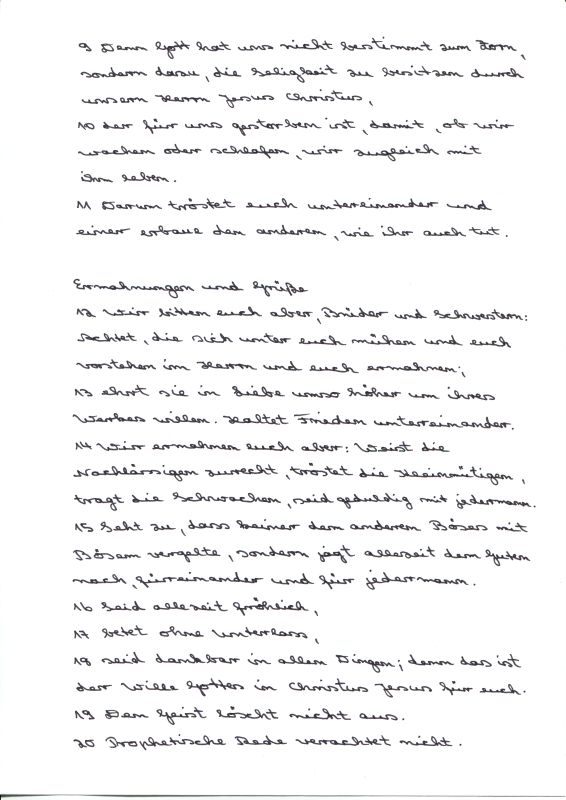 9 Denn Gott hat uns nicht bestimmt zum Zorn,
sondern dazu, die Seligkeit zu besitzen durch
unsern Herrn Jesus Christus,
10 der für uns gestorben ist, damit, ob wir
wachen oder schlafen, wir zugleich mit
ihm leben.
11 Darum tröstet euch untereinander und
einer erbaue den anderen, wie ihr auch tut.
Ermahnungen und Grüße
12 Wir bitten euch aber, Brüder und Schwestern:
Achtet, die sich unter euch mühen und euch
vorstehen im Herrn und euch ermahnen;
13 ehrt sie in Liebe umso höher um ihres
Werkes willen. Haltet Frieden untereinander.
14 Wir ermahnen euch aber: Weist die
Nachlässigen zurecht, tröstet die Kleinmütigen,
tragt die Schwachen, seid geduldig mit jedermann.
15 Seht zu, dass keiner dem anderen Böses mit
Bösem vergelte, sondern jagt allezeit dem Guten
nach, füreinander und für jedermann.
16 Seid allezeit fröhlich,
17 betet ohne Unterlass,
18 seid dankbar in allen Dingen; denn das ist
der Wille Gottes in Christus Jesus für euch.
19 Den Geist löscht nicht aus.
20 Prophetische Rede verachtet nicht.